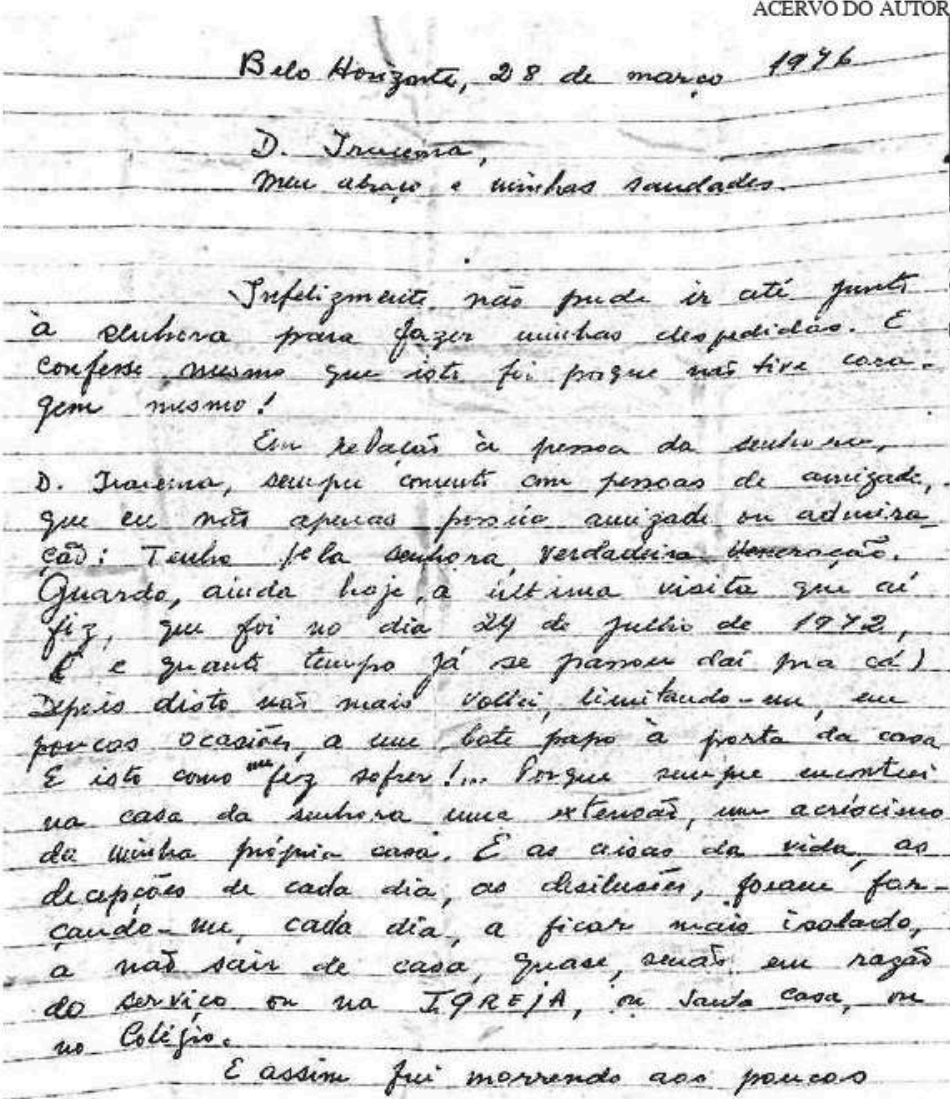 ACERVO DO AUTOR
Belo Horizonte, 28 de março 1976
D. Iracema,
Meu abraço e minhas saudades.
Infelizmente não pude ir até junto
à senhora para fazer minhas despedidas. E
confesso mesmo que isto foi porque não tive cora-
gem mesmo!
Em relação à pessoa da senhora,
D. Iracema, sempre comento com pessoas de amizade,
que eu não apenas possúo amizade ou admira
ção: Tenho pela senhora, verdadeira Veneração.
Guardo, ainda hoje, a última visita que aí
fiz, que foi no dia 24 de julho de 1972,
E e quanto tempo já se passou daí pra cá!
Depois disto não mais voltei, limitando-me, em
poucas ocasiões, a um bate papo à porta da casa
E isto como me fez sofrer!... Porque sempre encontrei
na casa da senhora uma extensão, um acréscimo
da minha própria casa. E as coisas da vida, as
decepções de cada dia, as desilusões, foram for-
çando-me, cada dia, a ficar mais isolado,
a não sair de casa, quase, senão em razão
do serviço ou na IGREJA, ou Santa Casa, ou
no Colégio.
E assim fui morrendo aos poucos